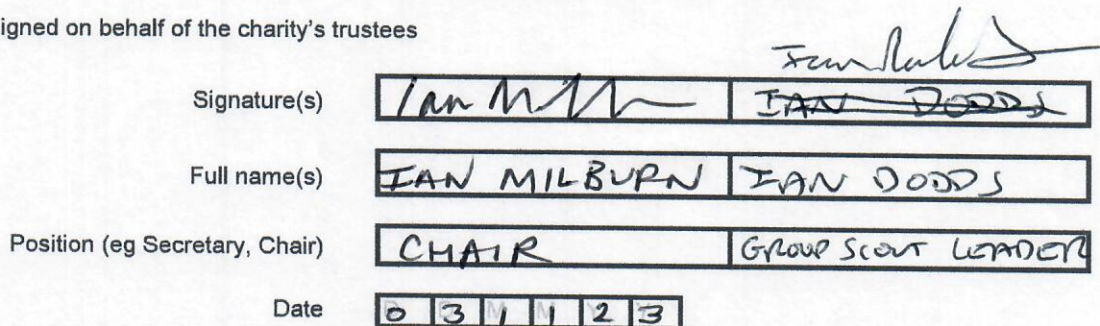 igned on behalf of the charity's trustees
Signature(s) Ian IAN DODDS
Full name(s) IAN MILBURN IAN DODDS
Position (eg Secretary, Chair) CHAIR GROUP SCOUT LEADER
Date 0 3 1 1 2 3